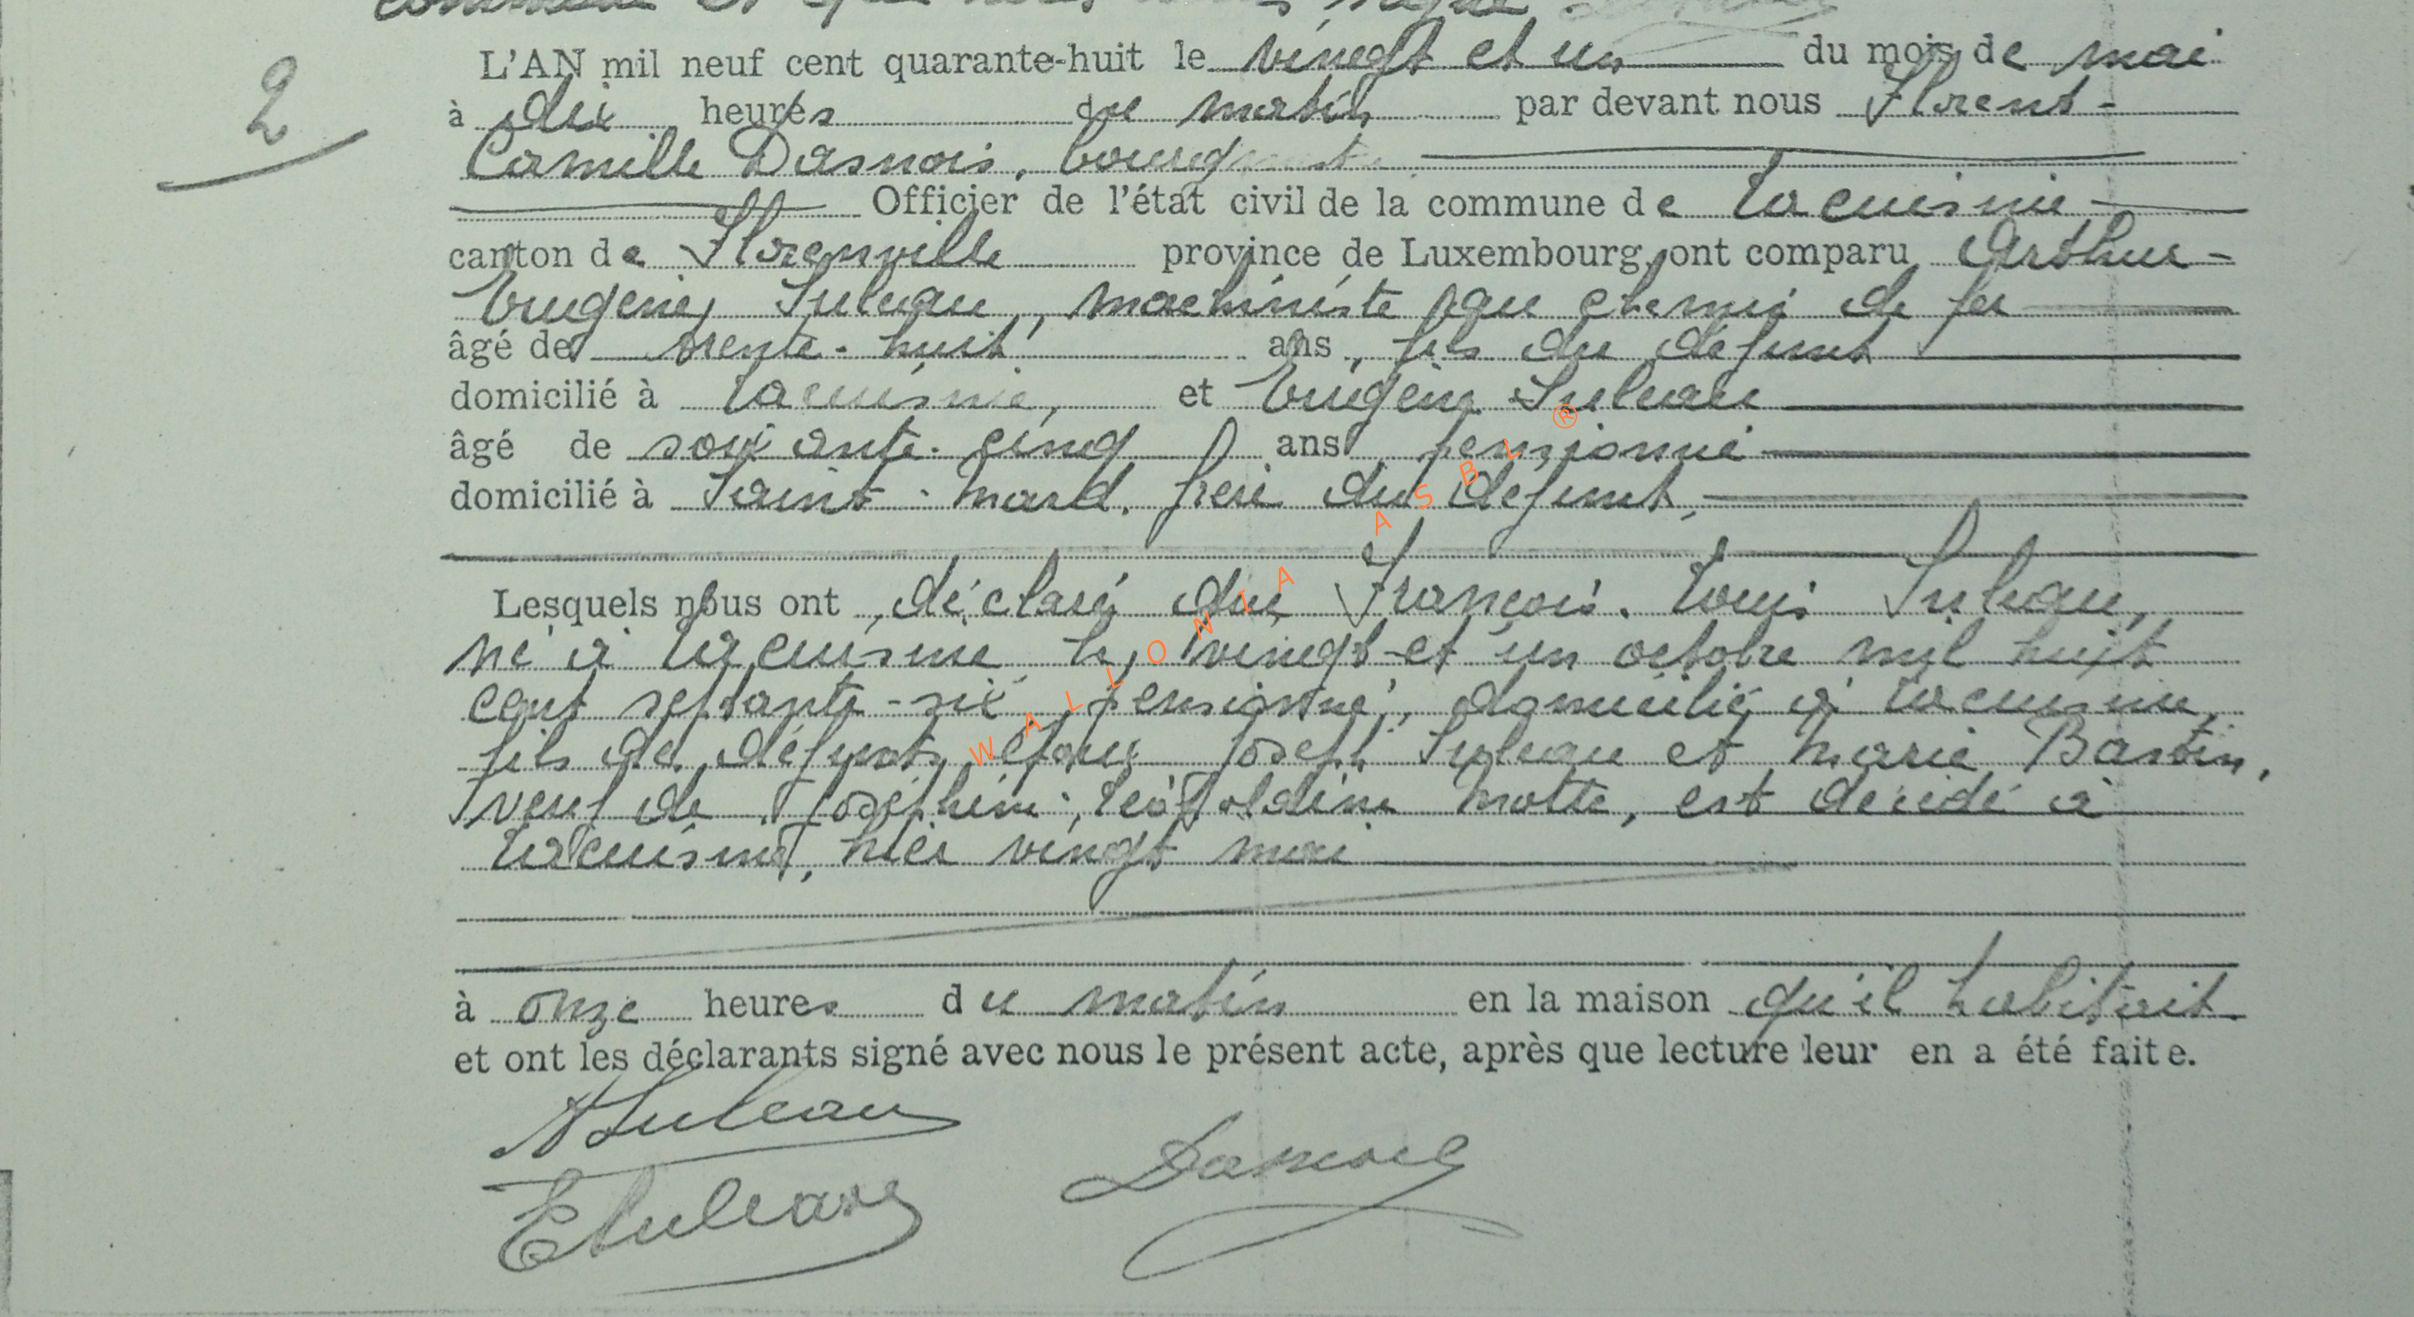 2
L'AN mil neuf cent quarante-huit le vingt et un du mois de mai
à dix heures du matin par devant nous Florent-
Camille Dasnois, bourgmestre
Officier de l'état civil de la commune de Lacuisine
canton de Florenville province de Luxembourg, ont comparu Arthur-
Eugène Suleau, machiniste au chemin de fer
âgé de trente-huit ans, fils du défunt
domicilié à Lacuisine, et Eugène Suleau
âgé de soixante-cinq ans pensionné
domicilié à Saint-Mard, frère du défunt,
Lesquels nous ont déclaré que François-Louis Suleau,
né à Lacuisine le vingt-et un octobre mil huit
cent septante-six, pensionné, domicilié à Lacuisine,
fils de défunts Joseph Suleau et Marie Bastin,
veuf de Joséphine-Léopoldine Motte, est décédé à
Lacuisine, hier vingt mai
à onze heures du matin en la maison qu'il habitait
et ont les déclarants signé avec nous le présent acte, après que lecture leur en a été faite.
ASuleau
ESuleau Dasnois
WALLONIA ASBL ®